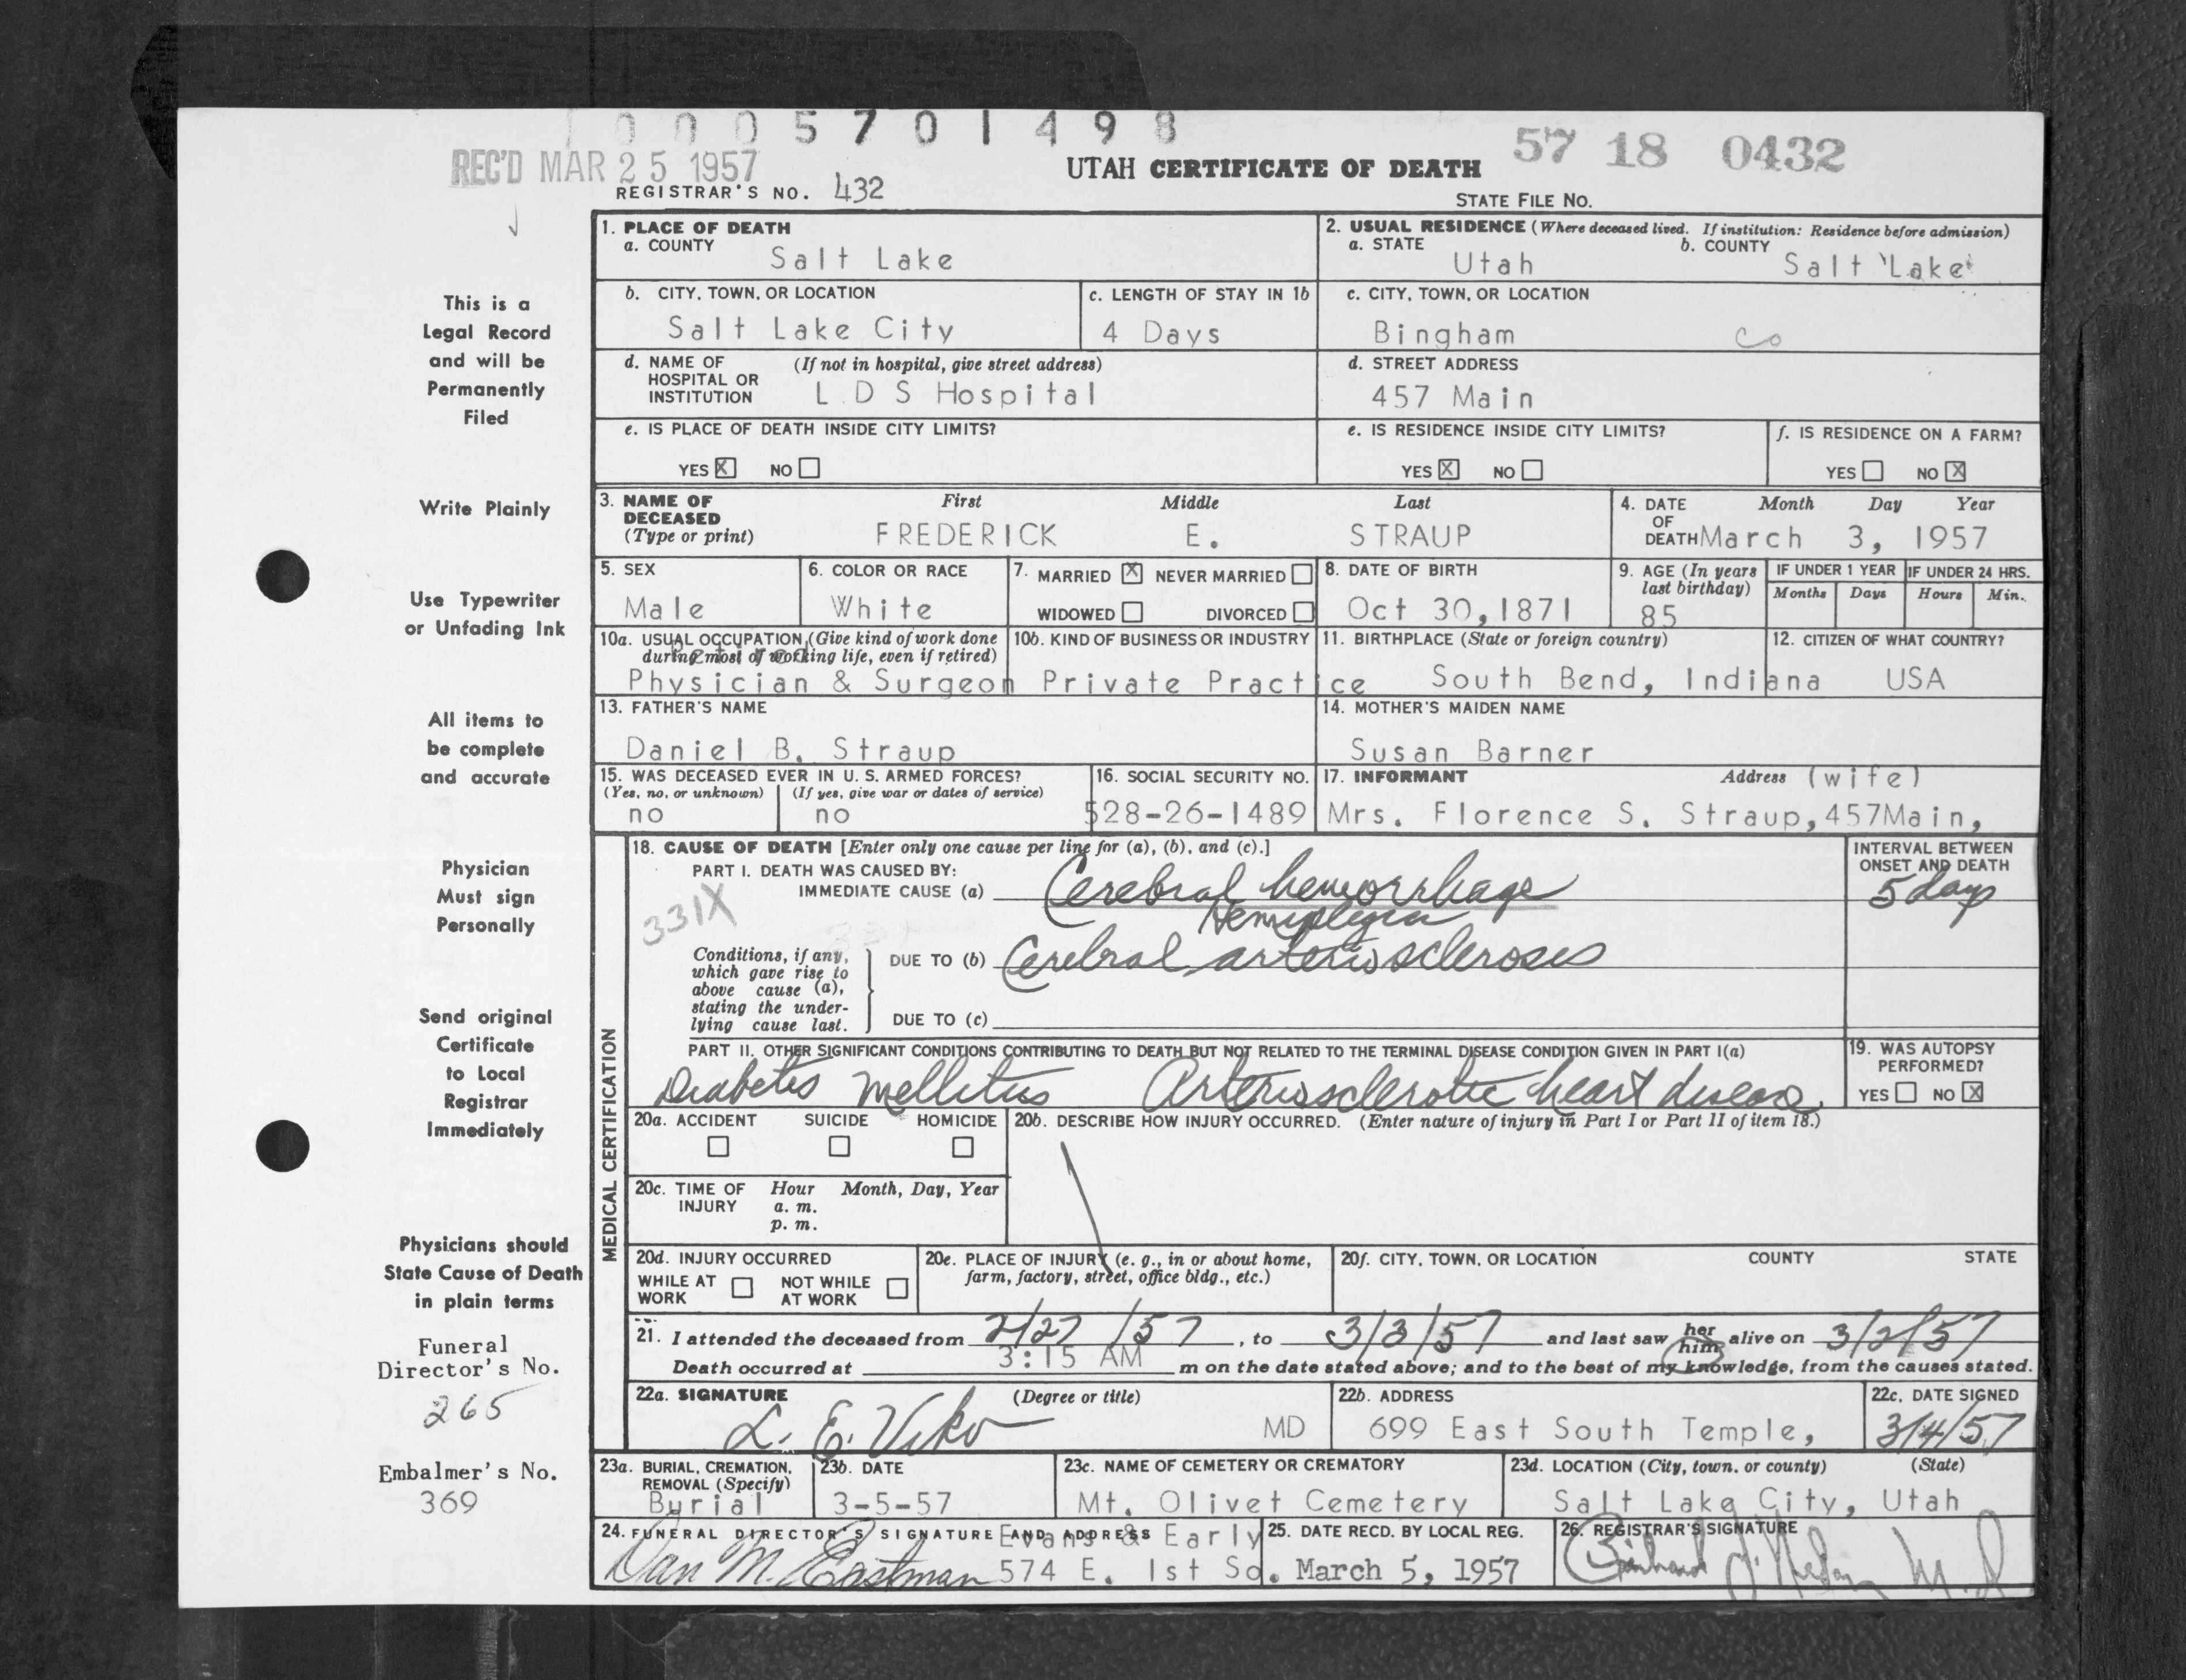 0 0 0 5 7 0 1 4 9 8
57 18 0432
REC'D MAR 25 1957
UTAH CERTIFICATE OF DEATH
REGISTRAR'S NO. 432
STATE FILE No.
1. PLACE OF DEATH
a. COUNTY Salt Lake
2. USUAL RESIDENCE (Where deceased lived. If institution: Residence before admission)
a. STATE Utah b. COUNTY Salt Lake
b. CITY, TOWN, OR LOCATION Salt Lake City
c. LENGTH OF STAY IN 1b 4 Days
c. CITY, TOWN, OR LOCATION Bingham Co
d. NAME OF HOSPITAL OR INSTITUTION (If not in hospital, give street address)
L D S Hospital
d. STREET ADDRESS
457 Main
e. IS PLACE OF DEATH INSIDE CITY LIMITS?
YES X NO
e. IS RESIDENCE INSIDE CITY LIMITS?
YES X NO
f. IS RESIDENCE ON A FARM?
YES NO X
3. NAME OF DECEASED (Type or print)
First Middle Last
FREDERICK E. STRAUP
4. DATE OF DEATH Month Day Year
March 3, 1957
5. SEX
Male
6. COLOR OR RACE
White
7. MARRIED X NEVER MARRIED
WIDOWED DIVORCED
8. DATE OF BIRTH
Oct 30,1871
9. AGE (In years last birthday)
85
IF UNDER 1 YEAR IF UNDER 24 HRS.
Months Days Hours Min.
10a. USUAL OCCUPATION (Give kind of work done during most of working life, even if retired)
Retired
Physician & Surgeon
10b. KIND OF BUSINESS OR INDUSTRY
Private Practice
11. BIRTHPLACE (State or foreign country)
South Bend, Indiana
12. CITIZEN OF WHAT COUNTRY?
USA
13. FATHER'S NAME
Daniel B. Straup
14. MOTHER'S MAIDEN NAME
Susan Barner
15. WAS DECEASED EVER IN U. S. ARMED FORCES?
(Yes, no, or unknown) (If yes, give war or dates of service)
no no
16. SOCIAL SECURITY NO.
528-26-1489
17. INFORMANT Address (wife)
Mrs. Florence S. Straup,457Main,
MEDICAL CERTIFICATION
18. CAUSE OF DEATH [Enter only one cause per line for (a), (b), and (c).]
PART I. DEATH WAS CAUSED BY:
IMMEDIATE CAUSE (a) Cerebral hemorrhage
Hemiplegia
331X
INTERVAL BETWEEN ONSET AND DEATH
5 days
Conditions, if any,
which gave rise to
above cause (a),
stating the under-
lying cause last.
DUE TO (b) Cerebral arteriosclerosis
DUE TO (c)
PART II. OTHER SIGNIFICANT CONDITIONS CONTRIBUTING TO DEATH BUT NOT RELATED TO THE TERMINAL DISEASE CONDITION GIVEN IN PART I(a)
Diabetes mellitus Arteriosclerotic heart disease.
19. WAS AUTOPSY PERFORMED?
YES NO X
20a. ACCIDENT SUICIDE HOMICIDE
20b. DESCRIBE HOW INJURY OCCURRED. (Enter nature of injury in Part I or Part II of item 18.)
20c. TIME OF INJURY Hour Month, Day, Year
a. m.
p. m.
20d. INJURY OCCURRED
WHILE AT WORK NOT WHILE AT WORK
20e. PLACE OF INJURY (e. g., in or about home, farm, factory, street, office bldg., etc.)
20f. CITY, TOWN, OR LOCATION COUNTY STATE
21. I attended the deceased from 2/27/57, to 3/3/57 and last saw her him alive on 3/2/57
Death occurred at 3:15 AM m on the date stated above; and to the best of my knowledge, from the causes stated.
22a. SIGNATURE (Degree or title)
L. E. Viko MD
22b. ADDRESS
699 East South Temple,
22c. DATE SIGNED
3/4/57
23a. BURIAL, CREMATION, REMOVAL (Specify)
Burial
23b. DATE
3-5-57
23c. NAME OF CEMETERY OR CREMATORY
Mt. Olivet Cemetery
23d. LOCATION (City, town, or county) (State)
Salt Lake City, Utah
24. FUNERAL DIRECTOR'S SIGNATURE AND ADDRESS
Evans & Early
Dan M. Eastman 574 E. 1st So.
25. DATE RECD. BY LOCAL REG.
March 5, 1957
26. REGISTRAR'S SIGNATURE
This is a
Legal Record
and will be
Permanently
Filed
Write Plainly
Use Typewriter
or Unfading Ink
All items to
be complete
and accurate
Physician
Must sign
Personally
Send original
Certificate
to Local
Registrar
Immediately
Physicians should
State Cause of Death
in plain terms
Funeral
Director's No.
265
Embalmer's No.
369